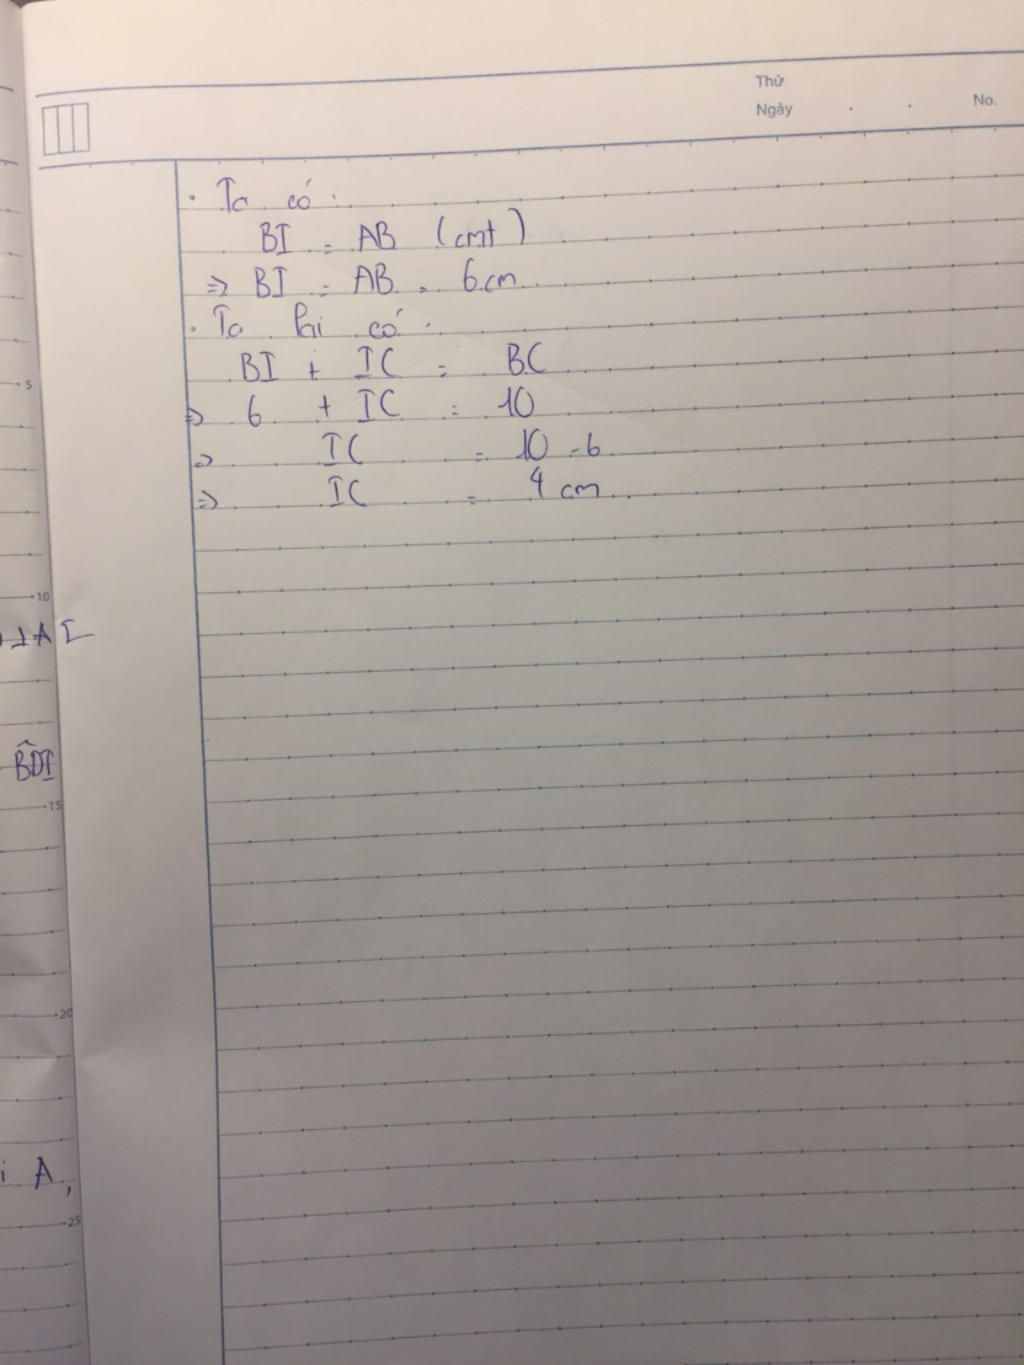 Thứ
Ngày . . No.
. Ta có :
BI = AB (cmt)
=> BI = AB = 6cm
. Ta lại có :
BI + IC = BC
=> 6 + IC = 10
=> IC = 10 - 6
=> IC = 4 cm
5
10
⊥AI
BDI
15
20
i A,
25